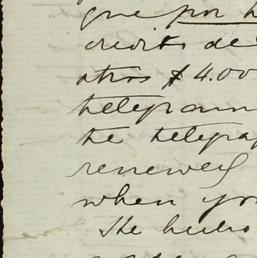 que por
credits de
otros $4.00
telegram
the telegra
renewed
when yo
The